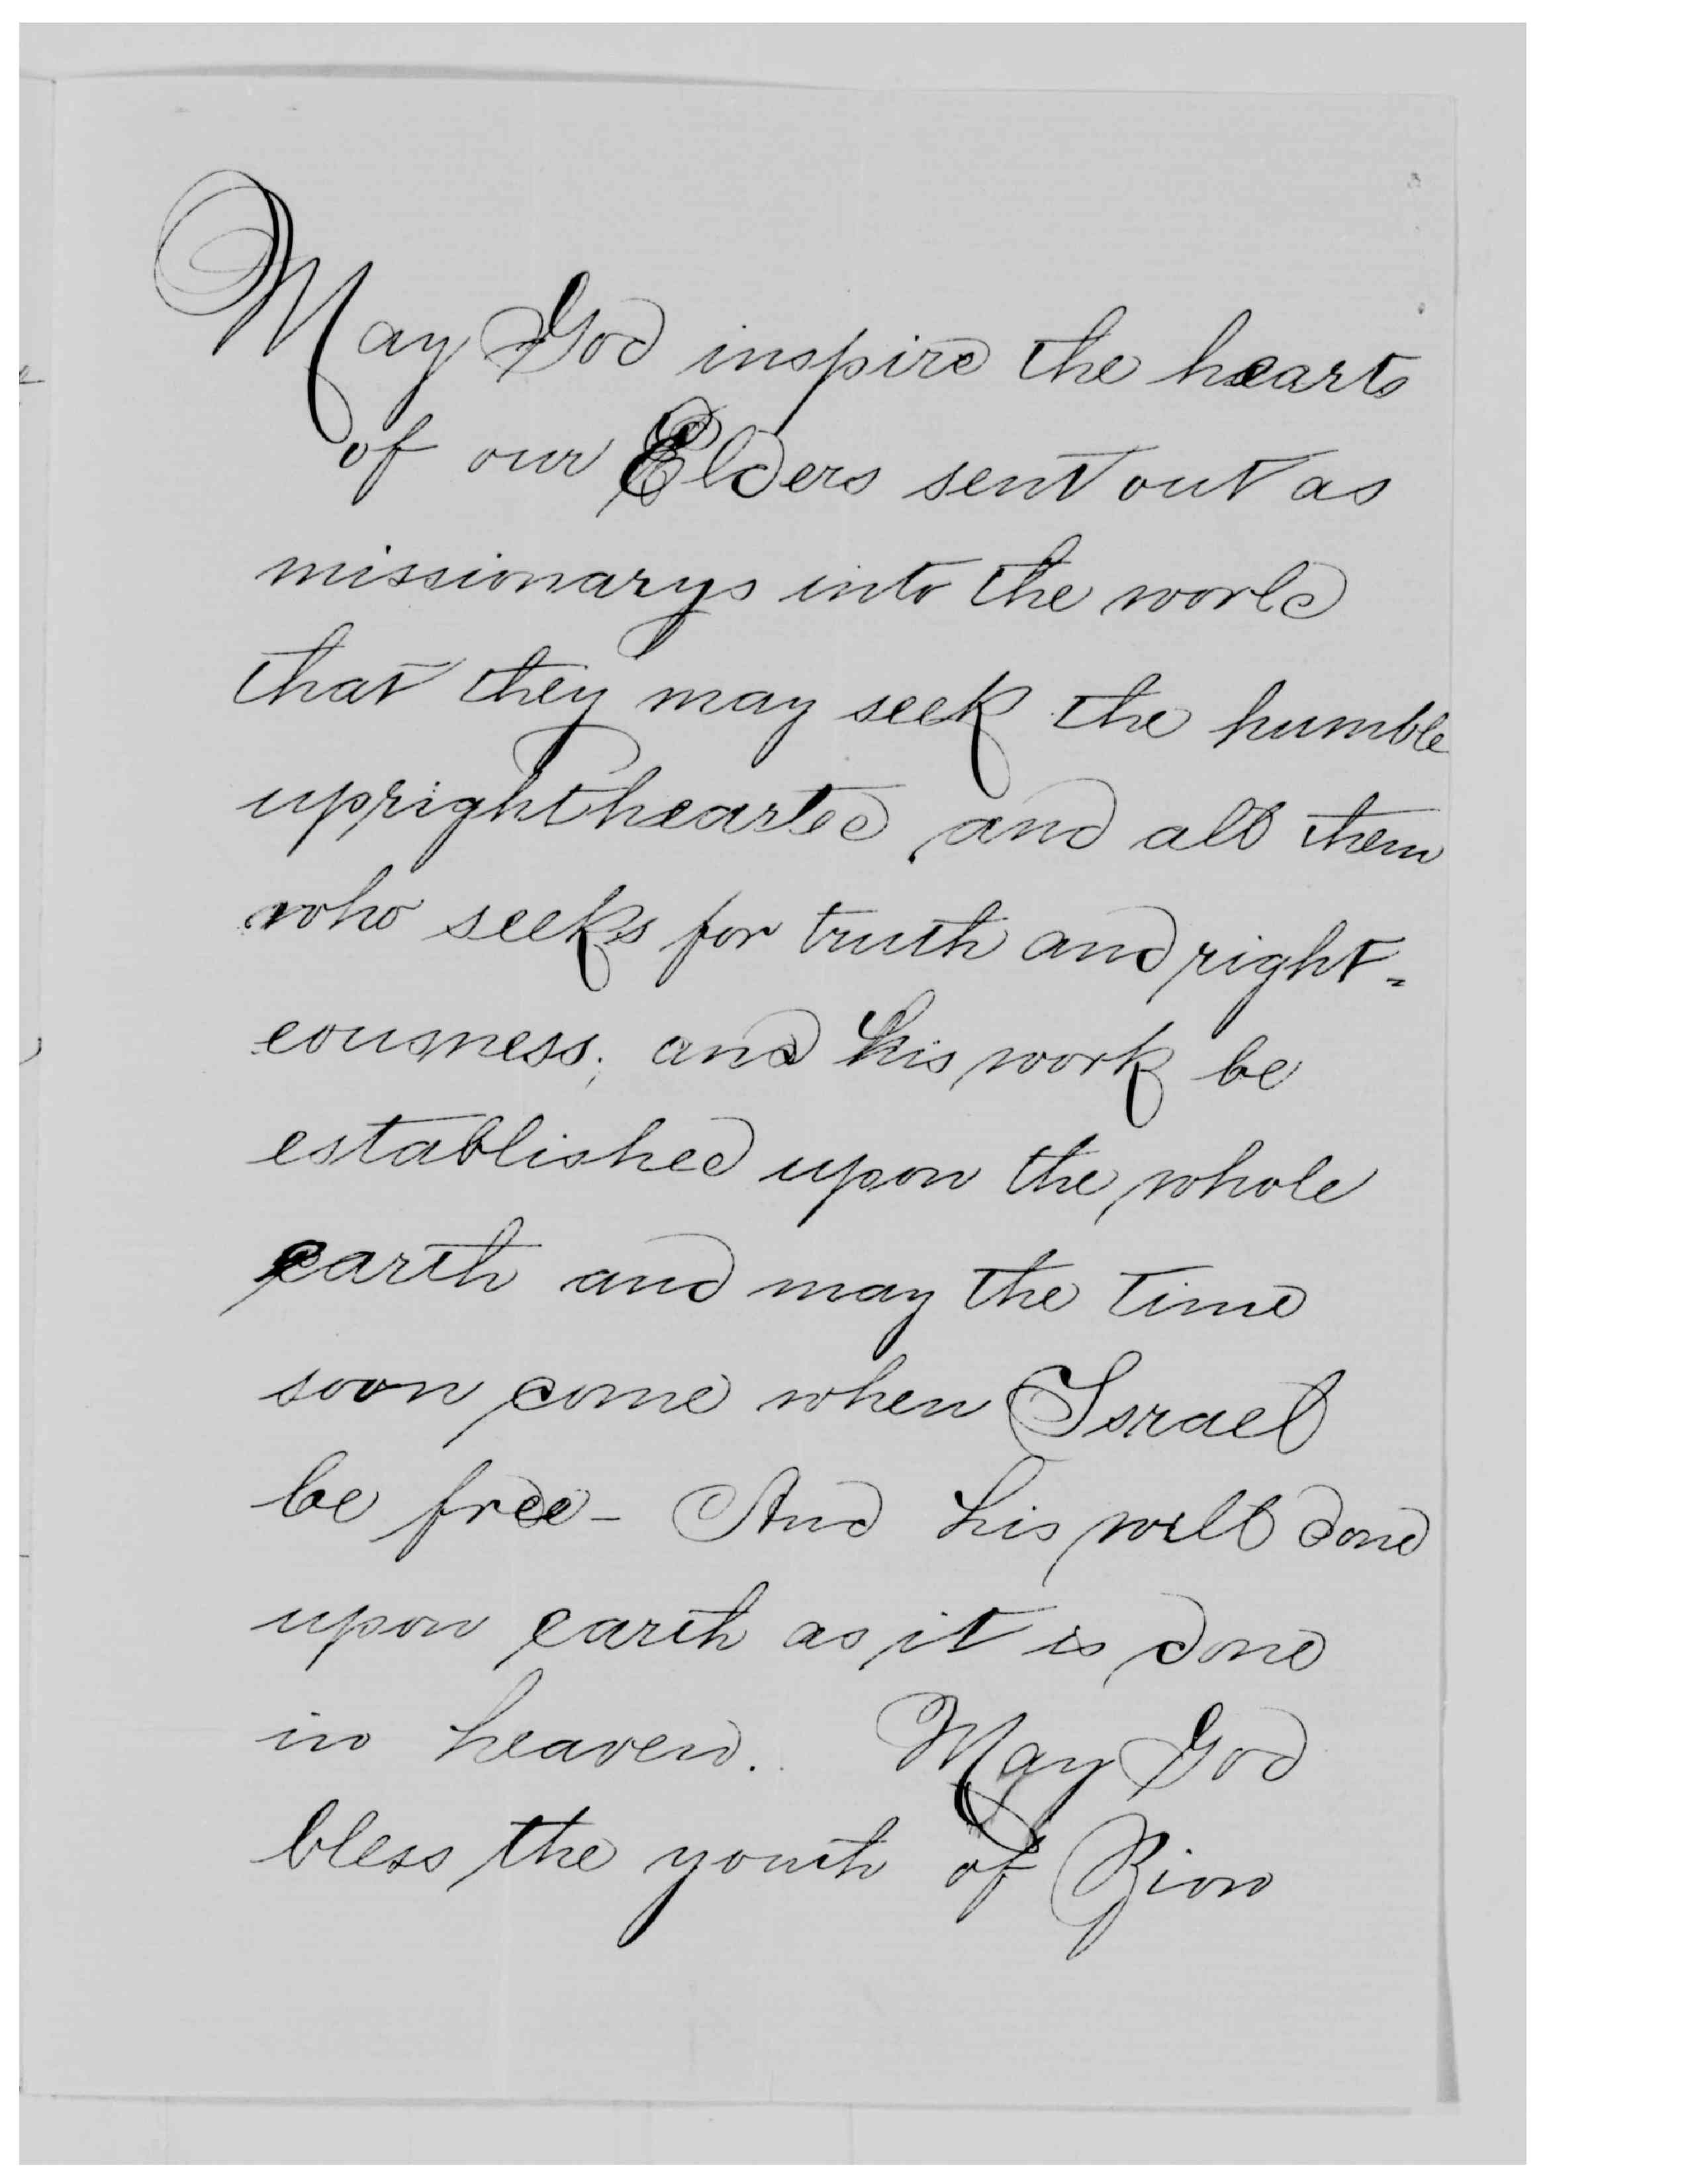 May God inspire the hearts
of our Elders sent out as
missionarys into the world
that they may seek the humble
uprighthearted and all them
who seeks for truth and right=
eousness; and his work be
established upon the whole
earth and may the time
soon come when Israel
be free - And his will done
upon earth as it is done
in heaven. May God
bless the youth of Zion